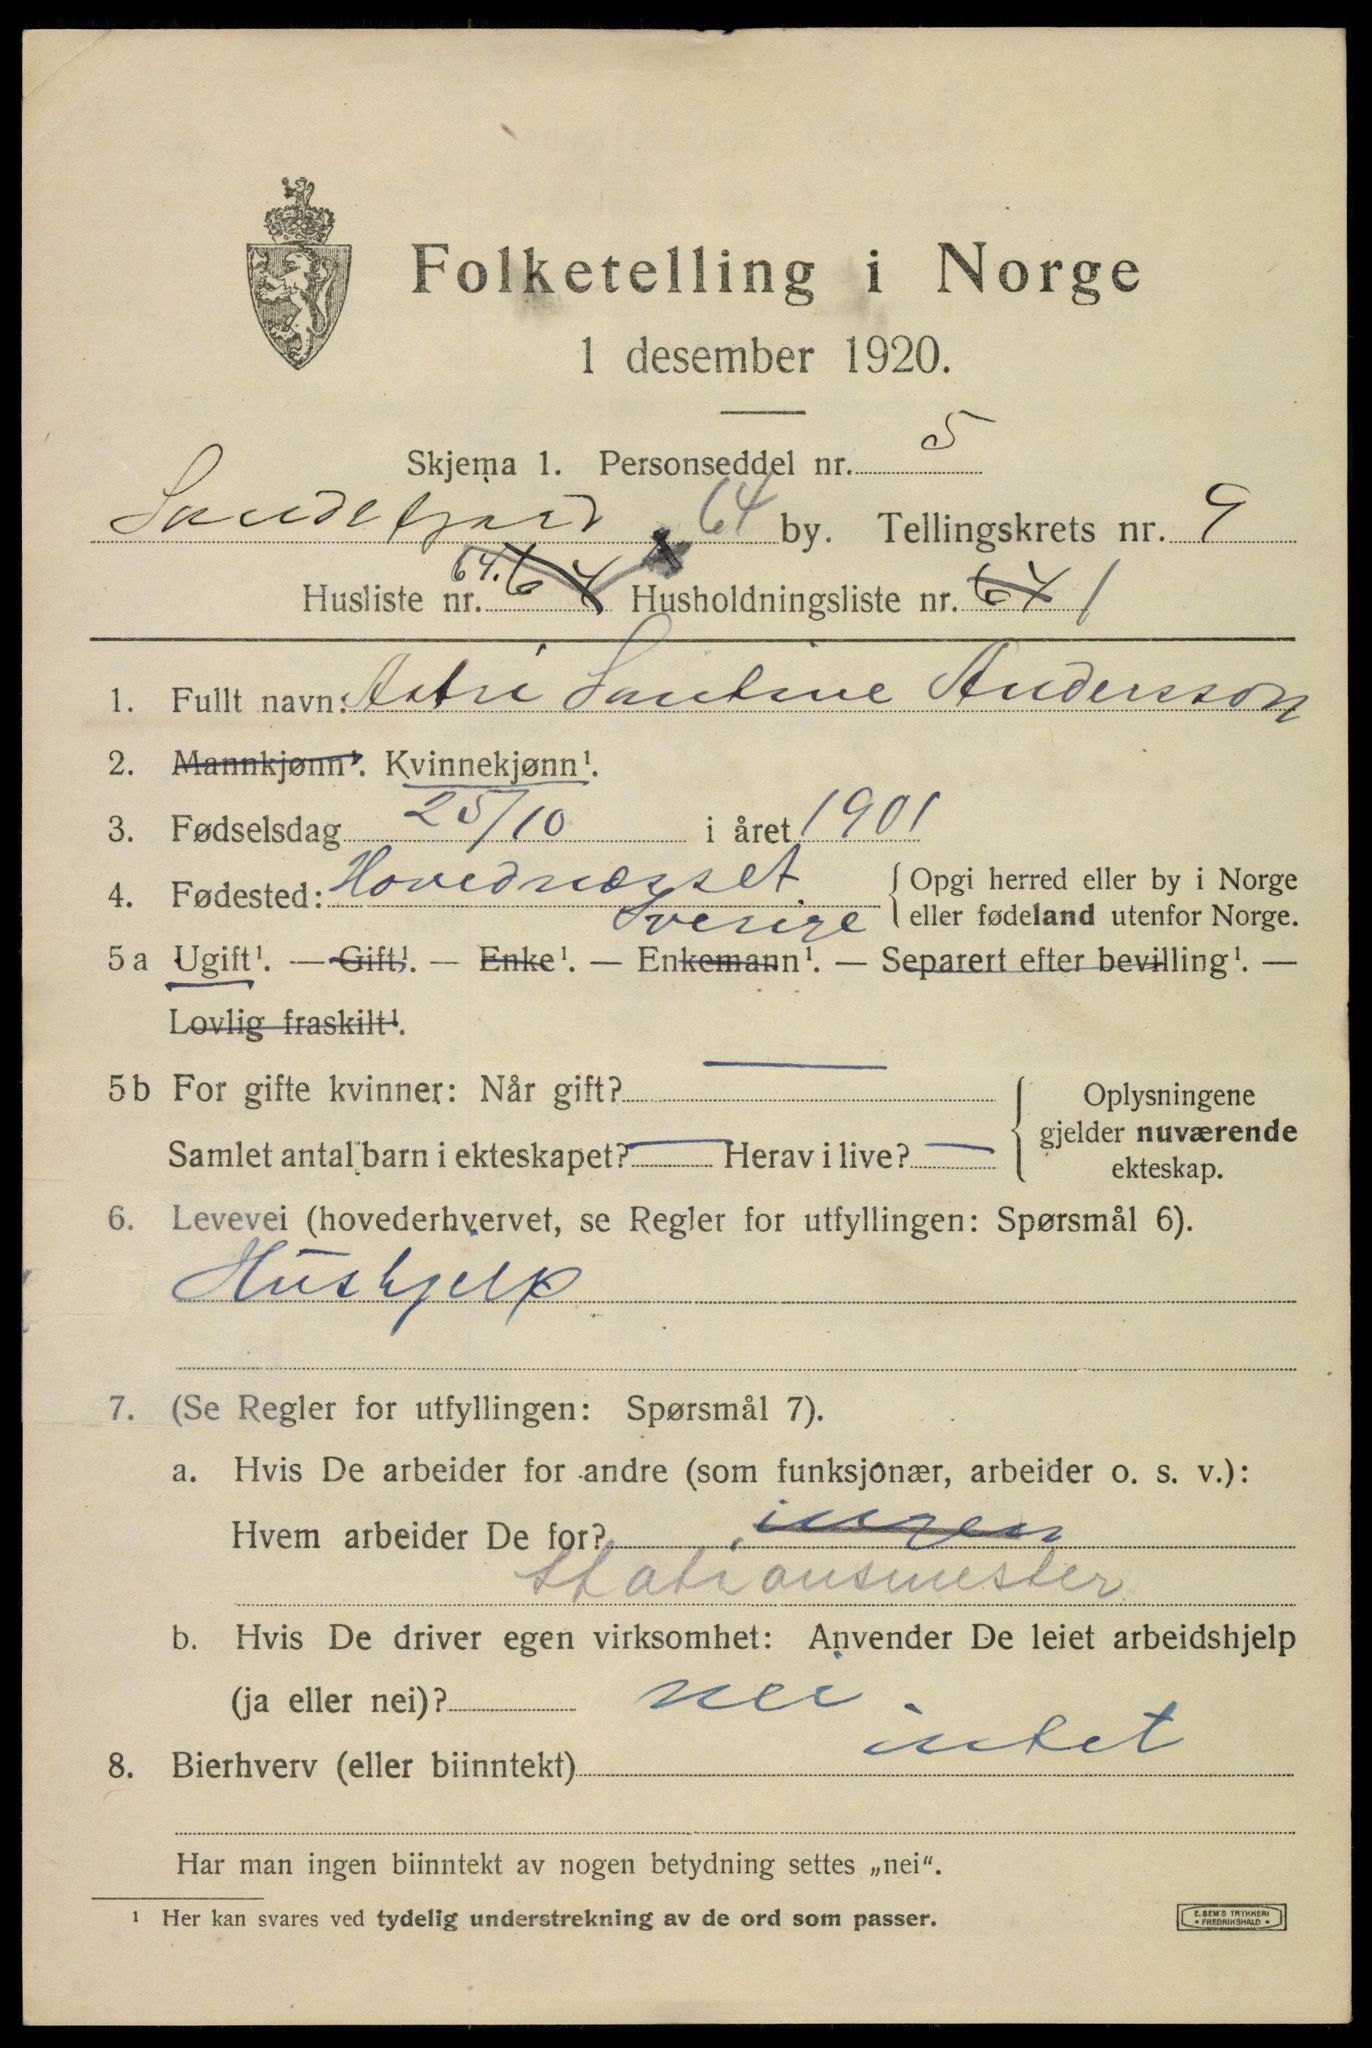 Folketelling i Norge
1 desember 1920.
Skjema 1. Personseddel nr. 5
Sandefjord 64 by. Tellingskrets nr. 9
Husliste nr. 64. 64 Husholdningsliste nr. 64 1
1. Fullt navn: Astri Santine Andersson
2. Mannkjønn¹. Kvinnekjønn¹.
3. Fødselsdag 25/10 i året 1901
4. Fødested: Hovednæsset Sverige { Opgi herred eller by i Norge
eller fødeland utenfor Norge.
5a Ugift¹. — Gift¹. — Enke¹. — Enkemann¹. — Separert efter bevilling¹. —
Lovlig fraskilt¹.
5b For gifte kvinner: Når gift? — { Oplysningene
gjelder nuværende
ekteskap.
Samlet antal barn i ekteskapet? — Herav i live? —
6. Levevei (hovederhvervet, se Regler for utfyllingen: Spørsmål 6).
Hushjelp
7. (Se Regler for utfyllingen: Spørsmål 7).
a. Hvis De arbeider for andre (som funksjonær, arbeider o. s. v.):
Hvem arbeider De for? ingen
Stationsmester
b. Hvis De driver egen virksomhet: Anvender De leiet arbeidshjelp
(ja eller nei)? nei
8. Bierhverv (eller biinntekt) intet
Har man ingen biinntekt av nogen betydning settes „nei“.
¹ Her kan svares ved tydelig understrekning av de ord som passer.
E. SEM'S TRYKKERI
FREDRIKSHALD